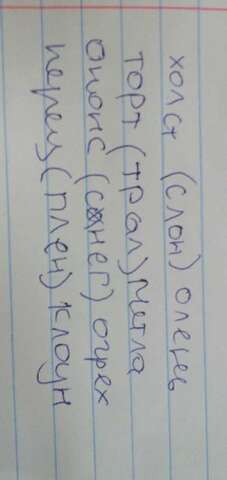 холст (слон) олень
торт (трал) метла
оникс (снег) огрех
перец (плен) клоун